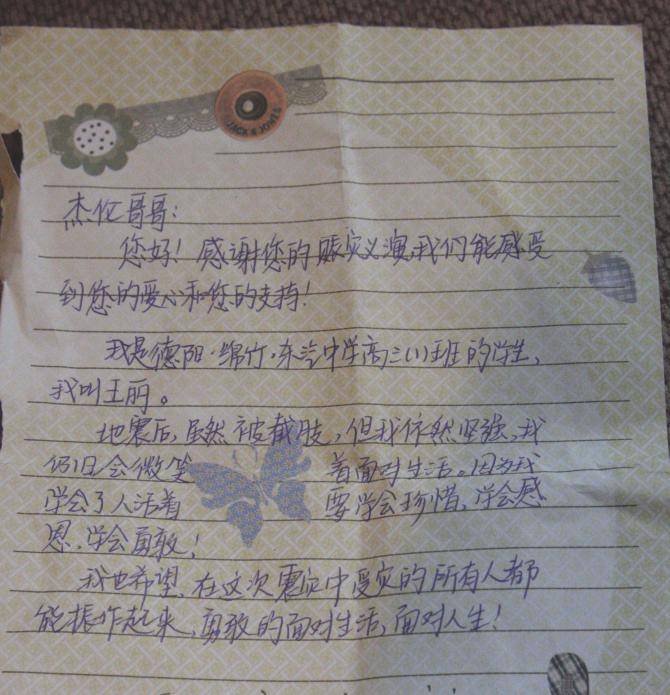 JACK & JONES
杰伦哥哥：
您好！感谢您的赈灾义演，我们能感受
到您的爱心和您的支持！
我是德阳·绵竹·东汽中学高三(1)班的学生，
我叫王丽。
地震后，虽然被截肢，但我依然坚强，我
仍旧会微笑着面对生活。因为我
学会了人活着要学会珍惜，学会感
恩，学会勇敢！
我也希望，在这次震灾中受灾的所有人都
能振作起来，勇敢的面对生活，面对人生！